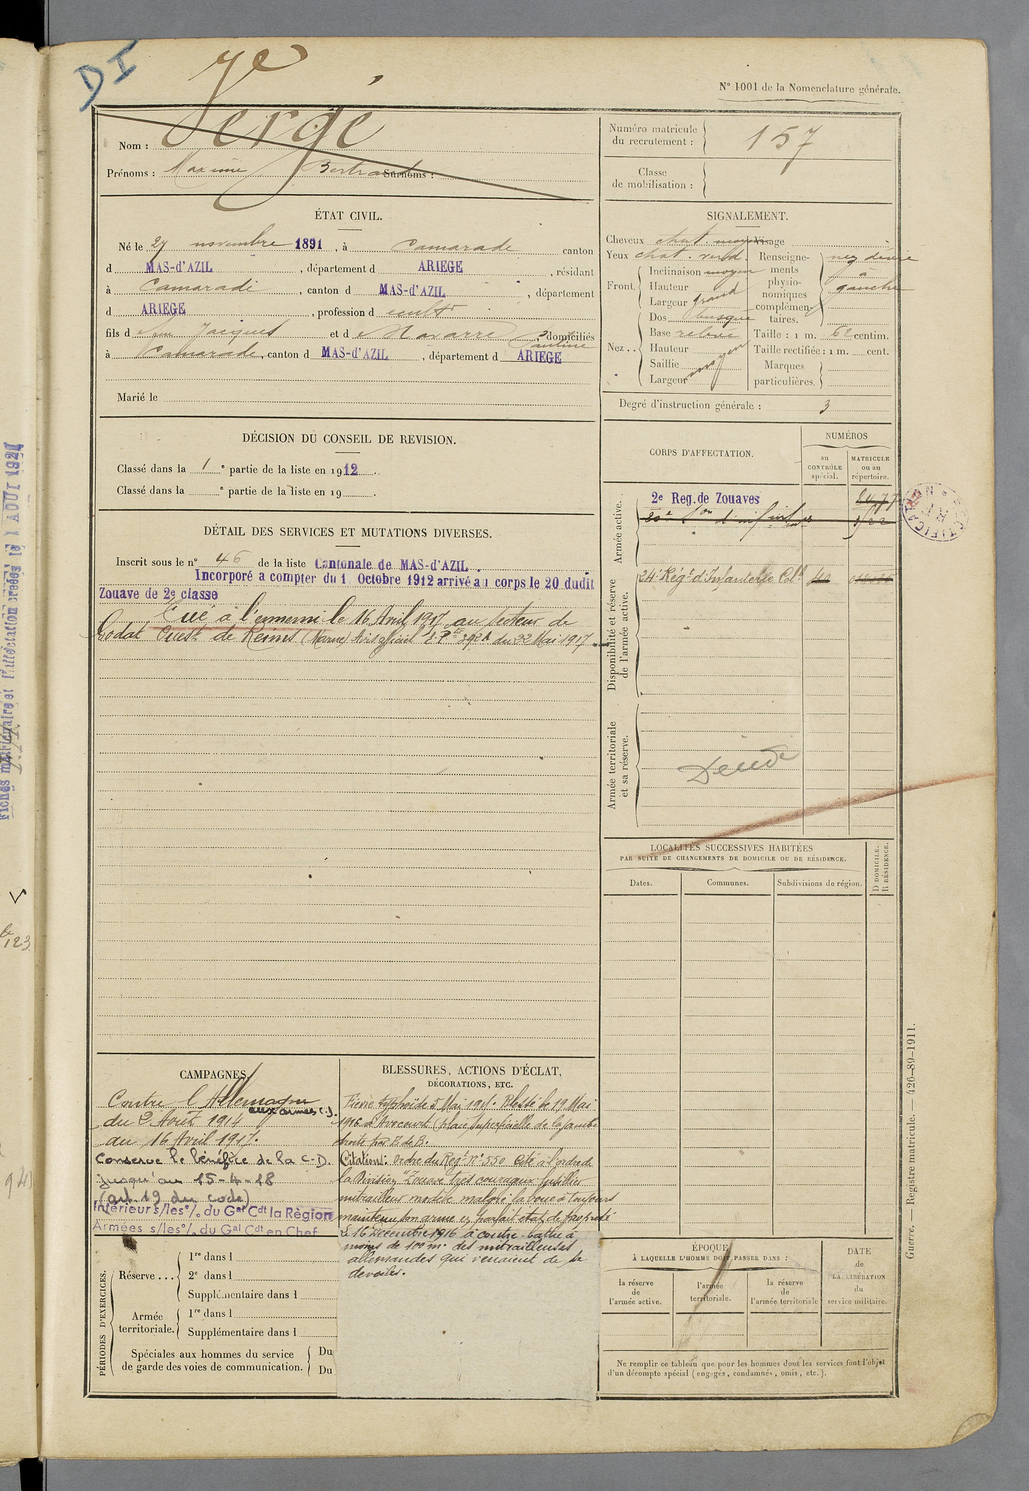 DI
N° 1001 de la Nomenclature générale.
Nom : Vergé
Prénoms : Maxime Bertrand Surnoms :
Numéro matricule du recrutement : 157
Classe de mobilisation :
ÉTAT CIVIL.
Né le 27 novembre 1891, à Camarade canton
d MAS-d'AZIL, département d ARIEGE, résidant
à Camarade, canton d MAS-d'AZIL, département
d ARIEGE, profession de cult
fils de Jacques et de Navarre, domiciliés
à Camarade, canton d MAS-d'AZIL, département d ARIEGE
Marié le
SIGNALEMENT.
Cheveux chat. moyen Visage
Yeux chat. verd.
Front. Inclinaison moyen
Hauteur
Largeur grand
Nez .. Dos busqué
Base relevé
Hauteur
Saillie moyen
Largeur
Renseignements physionomiques complémentaires. nez dévié à gauche
Taille : 1 m. 62 centim.
Taille rectifiée : 1 m. cent.
Marques particulières.
Degré d'instruction générale : 3
DÉCISION DU CONSEIL DE REVISION.
Classé dans la 1e partie de la liste en 1912.
Classé dans la e partie de la liste en 19 .
CORPS D'AFFECTATION.
NUMÉROS
au CONTRÔLE spécial.
MATRICULE ou au répertoire.
Armée active.
2e Reg. de Zouaves
Disponibilité et réserve de l'armée active.
24e Régt d'Infanterie Cole
Armée territoriale et sa réserve.
DÉTAIL DES SERVICES ET MUTATIONS DIVERSES.
Inscrit sous le n° 46 de la liste Cantonale de MAS-d'AZIL.
Incorporé a compter du 1 Octobre 1912 arrivé au corps le 20 dudit
Zouave de 2e classe
Tué à l'ennemi le 16 Avril 1917 au secteur de
Godat Ouest de Reims (Marne) Avis officiel du 22 Mai 1917
LOCALITÉS SUCCESSIVES HABITÉES
PAR SUITE DE CHANGEMENTS DE DOMICILE OU DE RÉSIDENCE.
Dates.
Communes.
Subdivisions de région.
D DOMICILE.
R RÉSIDENCE.
CAMPAGNES
Contre l'Allemagne
aux armées
du 2 Août 1914
au 16 Avril 1917.
Conserve le bénéfice de la C-D.
jusqu'au 15-4-18
(art. 19 du code)
Intérieur s/les % du Gal Cdt la Région
Armées s/les % du Gal Cdt en Chef
BLESSURES, ACTIONS D'ÉCLAT, DÉCORATIONS, ETC.
Fièvre typhoïde 5 Mai 191. Blessé le 19 Mai
1916 à Avocourt (plaie superficielle de la jambe
droite par E. de B.
Citation: Ordre du Régt N° 550 Cité à l'ordre de
la Division "Zouave très courageux fusilier
mitrailleur modèle malgré la boue a toujours
maintenu son arme en parfait état de propreté
Le 16 Décembre 1916 a contre-battu à
moins de 100 m. des mitrailleuses
allemandes qui venaient de se
dévoiler.
PÉRIODES D'EXERCICES.
Réserve ...
1re dans l
2e dans l
Supplémentaire dans l
Armée territoriale.
1re dans l
Supplémentaire dans l
Spéciales aux hommes du service de garde des voies de communication.
Du
Du
ÉPOQUE
À LAQUELLE L'HOMME DOIT PASSER DANS :
la réserve de l'armée active.
l'armée territoriale.
la réserve de l'armée territoriale
DATE de LA LIBÉRATION du service militaire.
Ne remplir ce tableau que pour les hommes dont les services font l'objet
d'un décompte spécial (engagés, condamnés, omis, etc.).
Guerre. — Registre matricule. — 426-89-1911.